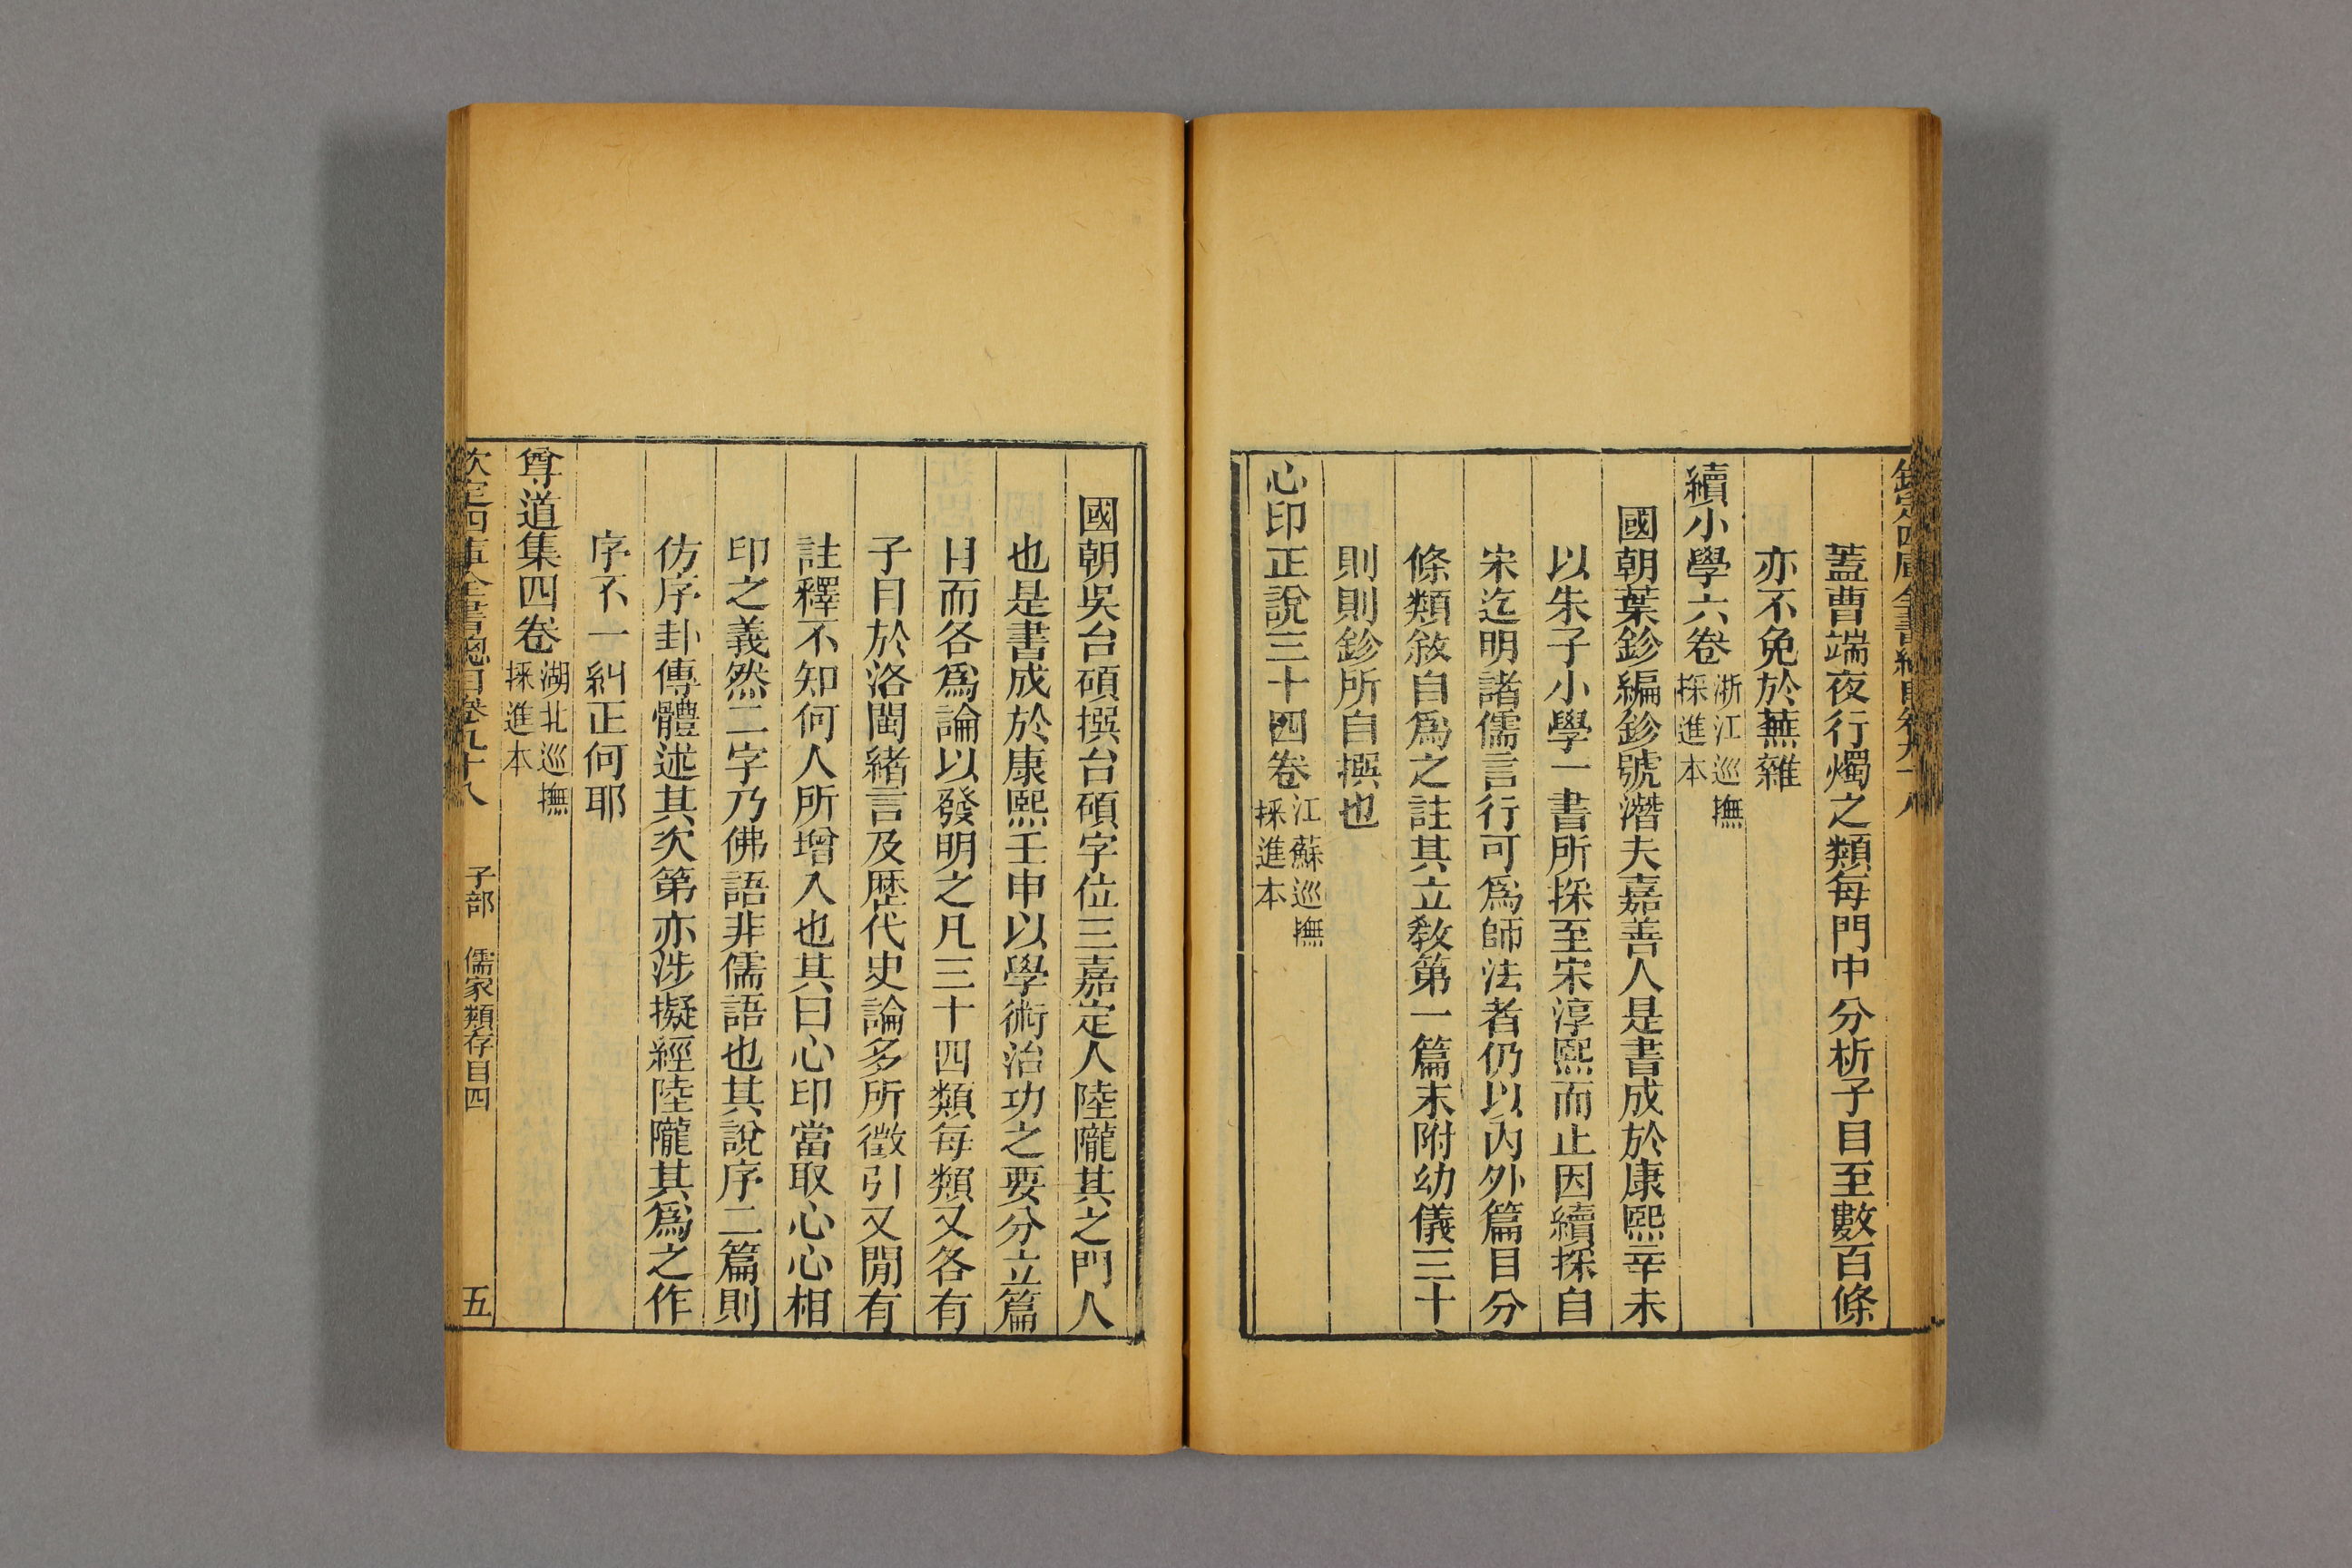 欽定四庫全書總目卷九十八
蓋曹端夜行燭之類每門中分析子目至數百條
亦不免於蕪雜
續小學六卷浙江巡撫採進本
國朝葉鉁編鉁號潛夫嘉善人是書成於康熙辛未
以朱子小學一書所採至宋淳熙而止因續採自
宋迄明諸儒言行可爲師法者仍以內外篇目分
條類敘自爲之註其立敎第一篇末附幼儀三十
則則鉁所自撰也
心印正說三十四卷江蘇巡撫採進本
國朝吳台碩撰台碩字位三嘉定人陸隴其之門人
也是書成於康熙壬申以學術治功之要分立篇
目而各爲論以發明之凡三十四類每類又各有
子目於洛閩緒言及歷代史論多所徵引又閒有
註釋不知何人所增入也其曰心印當取心心相
印之義然二字乃佛語非儒語也其說序二篇則
仿序卦傳體述其次第亦涉擬經陸隴其爲之作
序不一糾正何耶
尊道集四卷湖北巡撫採進本
欽定四庫全書總目卷九十八 子部 儒家類存目四 五